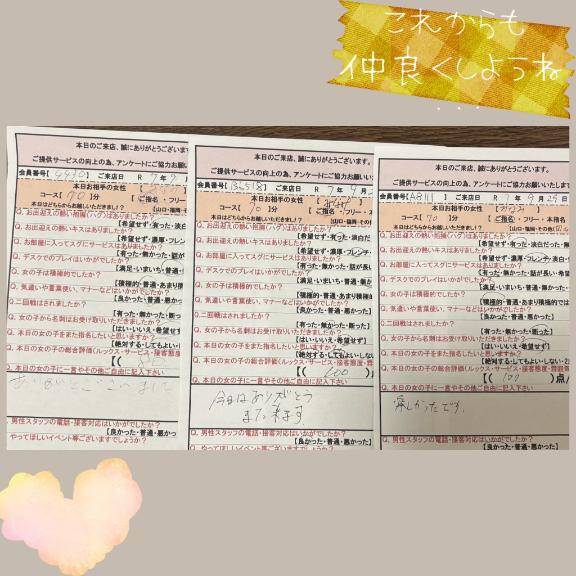 これからも
仲良くしようね
...
本日のご来店、誠にありがとうございます。
ご提供サービスの向上の為、アンケートにご協力お願い
会員番号【
】 ご来店日 R 7年
本日お相手の女性
コース【70
本日はどちらからお越しいただきましたか？
Q. お出迎えの熱い抱擁(ハグ)はありましたか？
【希望せず・有った・淡白
Q. お出迎えの熱いキスはありましたか？
【希望せず・濃厚・フレン
Q. お部屋に入ってスグにサービスはありましたか？
【有った・無かった・話が
Q. デスクでのプレイはいかがでしたか？
【満足・いまいち・普通・
Q. 女の子は積極的でしたか？
【積極的・普通・あまり積極
Q. 気遣いや言葉使い、マナーなどはいかがでしたか？
【良かった・普通・悪かった】
Q. 二回戦はされましたか？
【有った・無かった・断った】
Q. 女の子から名刺はお受け取りいただきましたか？
【はい・いいえ・希望せず】
Q. 本日の女の子をまた指名したいと思いますか？
【絶対する・してもよい・しない
Q. 本日の女の子の総合評価(ルックス・サービス・接客態度・
Q. 本日の女の子に一言やその他ご自由に記入下さい
Q. 男性スタッフの電話・接客対応はいかがでしたか？
【良かった・普通・悪かった
やってほしいイベント等ございますでしょうか？
本日のご来店、誠にありがとうございます。
ご提供サービスの向上の為、アンケートにご協力お願い
会員番号【B6518】 ご来店日 R 7年 9月
本日お相手の女性
コース【70
本日はどちらからお越しいただきましたか？
Q. お出迎えの熱い抱擁(ハグ)はありましたか？
【希望せず・有った・淡白だ
Q. お出迎えの熱いキスはありましたか？
【希望せず・濃厚・フレンチ・
Q. お部屋に入ってスグにサービスはありましたか？
【有った・無かった・話が長い
Q. デスクでのプレイはいかがでしたか？
【満足・いまいち・普通・希
Q. 女の子は積極的でしたか？
【積極的・普通・あまり積極的
Q. 気遣いや言葉使い、マナーなどはいかがでしたか？
【良かった・普通・悪かった】
Q. 二回戦はされましたか？
【有った・無かった・断った】
Q. 女の子から名刺はお受け取りいただきましたか？
【はい・いいえ・希望せず】
Q. 本日の女の子をまた指名したいと思いますか？
【絶対する・してもよい・しない
Q. 本日の女の子の総合評価(ルックス・サービス・接客態度・雰囲
【( 100 )
Q. 本日の女の子に一言やその他ご自由に記入下さい
今日はありがとう
また来ます
Q. 男性スタッフの電話・接客対応はいかがでしたか？
【良かった・普通・悪かった】
Q. やってほしいイベント等ございますでしょうか？
本日のご来店、誠にありがとうございます。
ご提供サービスの向上の為、アンケートにご協力お願いいたしま
会員番号【A8111】 ご来店日 R 7年 9月29日
本日お相手の女性
コース【70
【ご指名・フリー・本指名
本日はどちらからお越しいただきましたか？
Q. お出迎えの熱い抱擁(ハグ)はありましたか？
【希望せず・有った・淡白だった・無
Q. お出迎えの熱いキスはありましたか？
【希望せず・濃厚・フレンチ・無
Q. お部屋に入ってスグにサービスはありましたか？
【有った・無かった・話が長い・希
Q. デスクでのプレイはいかがでしたか？
【満足・いまいち・普通・希望せ
Q. 女の子は積極的でしたか？
【積極的・普通・あまり積極的では
Q. 気遣いや言葉使い、マナーなどはいかがでしたか？
【良かった・普通・悪かった】
Q. 二回戦はされましたか？
【有った・無かった・断った】
Q. 女の子から名刺はお受け取りいただきましたか？
【はい・いいえ・希望せず】
Q. 本日の女の子をまた指名したいと思いますか？
【絶対する・してもよい・しない・2
Q. 本日の女の子の総合評価(ルックス・サービス・接客態度・雰囲
【( 100 )点/
Q. 本日の女の子に一言やその他ご自由に記入下さい
楽しかったです。
Q. 男性スタッフの電話・接客対応はいかがでしたか？
【良かった・普通・悪かった】